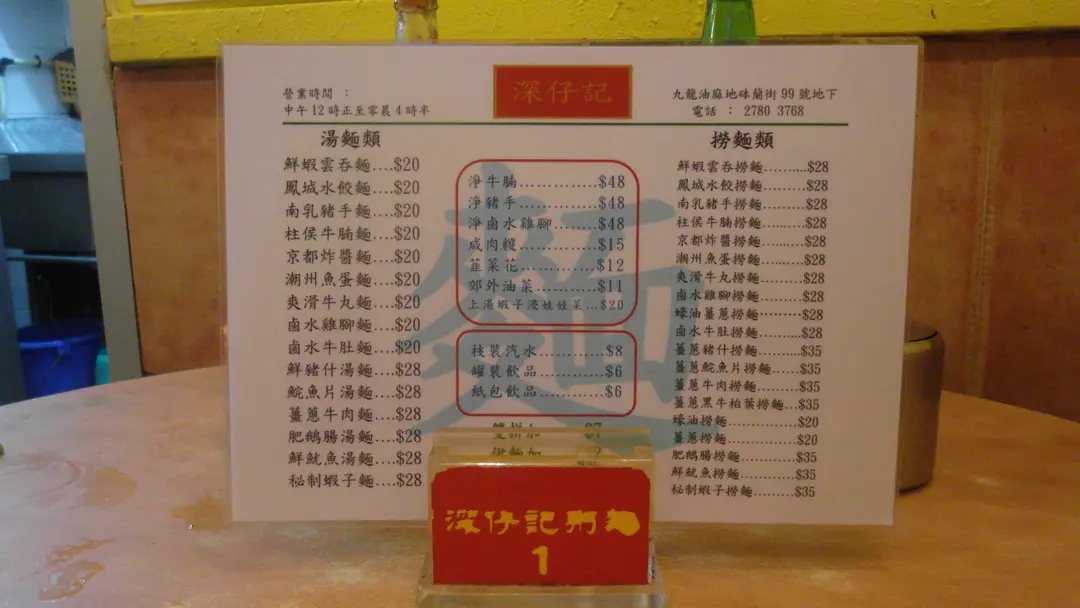 營業時間 ：
中午12時正至零晨4時半
深仔記
九龍油麻地砵蘭街99號地下
電話 ： 2780 3768
湯麵類
鮮蝦雲吞麵....$20
鳳城水餃麵....$20
南乳豬手麵....$20
柱侯牛腩麵....$20
京都炸醬麵....$20
潮州魚蛋麵....$20
爽滑牛丸麵....$20
鹵水雞腳麵....$20
鹵水牛肚麵....$20
鮮豬什湯麵....$28
鯇魚片湯麵....$28
薑蔥牛肉麵....$28
肥鵝腸湯麵....$28
鮮魷魚湯麵....$28
秘制蝦子麵....$28
麵
淨牛腩..............$48
淨豬手..............$48
淨鹵水雞腳.........$48
咸肉糭.............$15
韮菜花.............$12
郊外油菜...........$11
上湯蝦子浸娃娃菜...$20
枝裝汽水...........$8
罐裝飲品...........$6
紙包飲品...........$6
撈麵類
鮮蝦雲吞撈麵.........$28
鳳城水餃撈麵.........$28
南乳豬手撈麵.........$28
柱侯牛腩撈麵.........$28
京都炸醬撈麵.........$28
潮州魚蛋撈麵.........$28
爽滑牛丸撈麵.........$28
鹵水雞腳撈麵.........$28
蠔油薑蔥撈麵.........$28
鹵水牛肚撈麵.........$28
薑蔥豬什撈麵.........$35
薑蔥鯇魚片撈麵......$35
薑蔥牛肉撈麵.........$35
薑蔥黑牛柏葉撈麵...$35
蠔油撈麵.............$20
薑蔥撈麵.............$20
肥鵝腸撈麵...........$35
鮮魷魚撈麵...........$35
秘制蝦子撈麵.........$35
深仔記粥麵
1